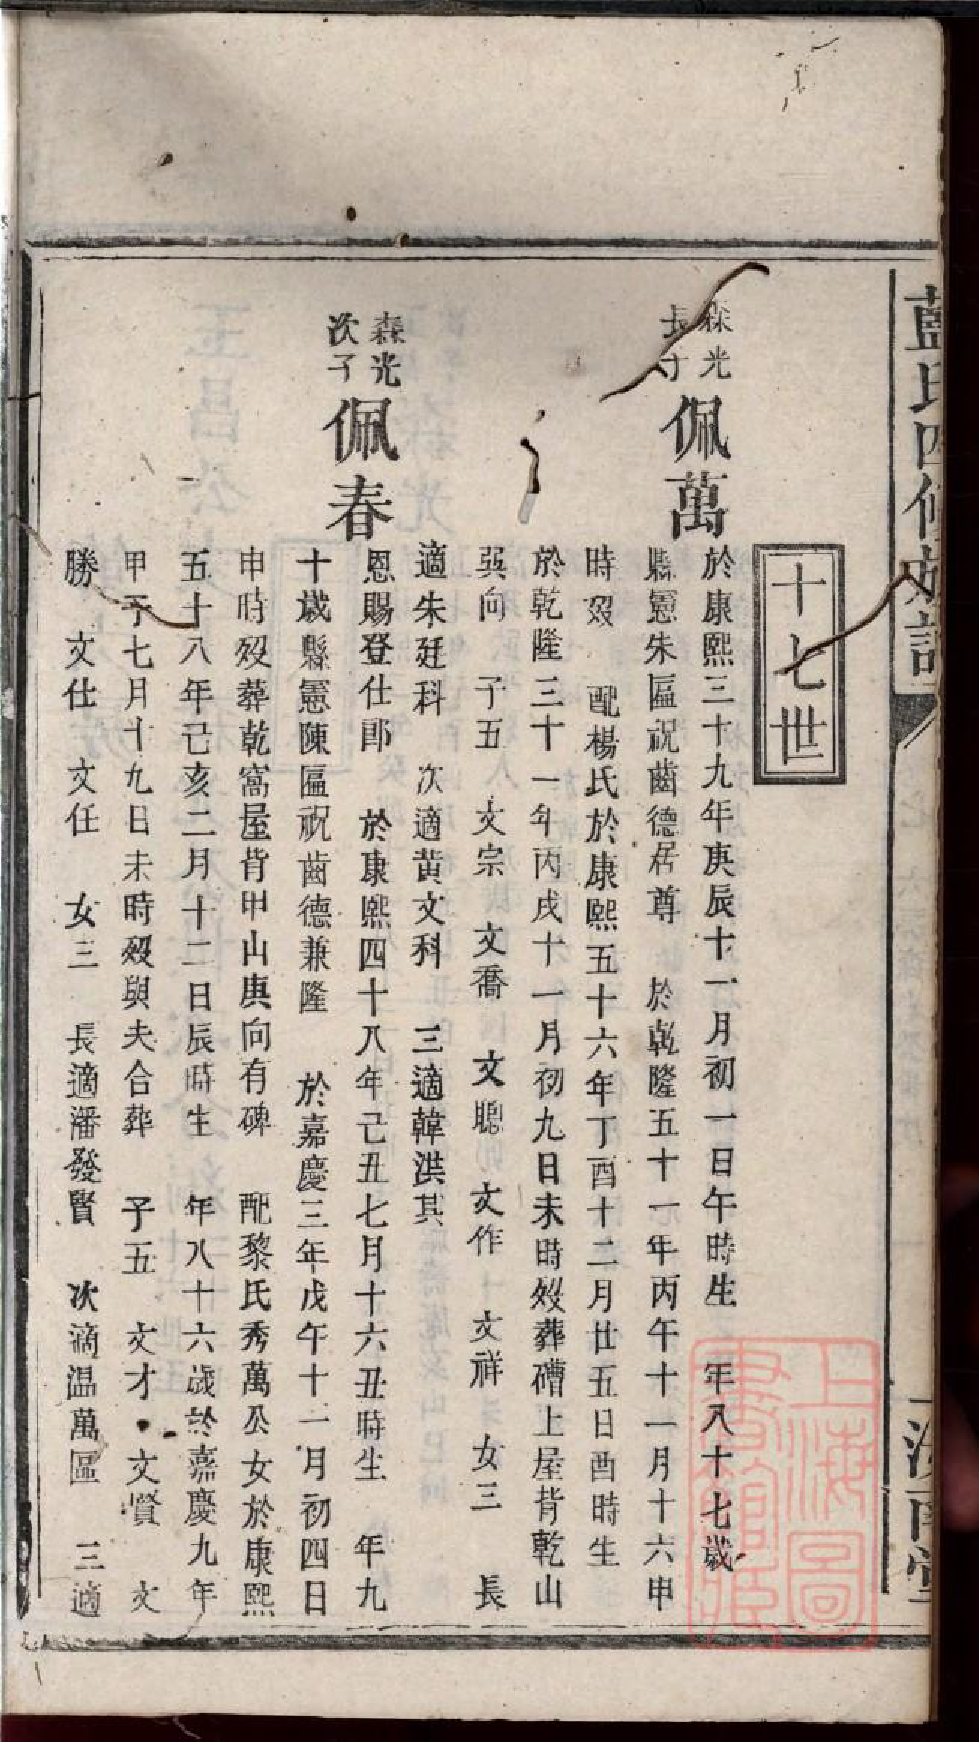 藍氏四修族譜
十七世
森光
長子
佩萬
於康熙三十九年庚辰十一月初一日午時生 年八十七歲
縣憲朱區祝齒德居尊 於乾隆五十一年丙午十一月十六申
時歿 配楊氏於康熙五十六年丁酉十二月廿五日酉時生
於乾隆三十一年丙戌十一月初九日未時歿葬磄上屋背乾山
吳向 子五 文宗 文喬 文聰 文作 文祥 女三 長
適朱廷科 次適黄文科 三適韓洪其
森光
次子
佩春
恩賜登仕郎 於康熙四十八年己丑七月十六丑時生 年九
十歲縣憲陳區祝齒德兼隆 於嘉慶三年戊午十一月初四日
申時歿葬乾窩屋背甲山庚向有碑 配黎氏秀萬公女於康熙
五十八年己亥二月十二日辰時生 年八十六歲於嘉慶九年
甲子七月十九日未時歿與夫合葬 子五 文才 文賢 文
勝 文仕 文任 女三 長適潘發賢 次滴温萬區 三適
上海圖書館藏